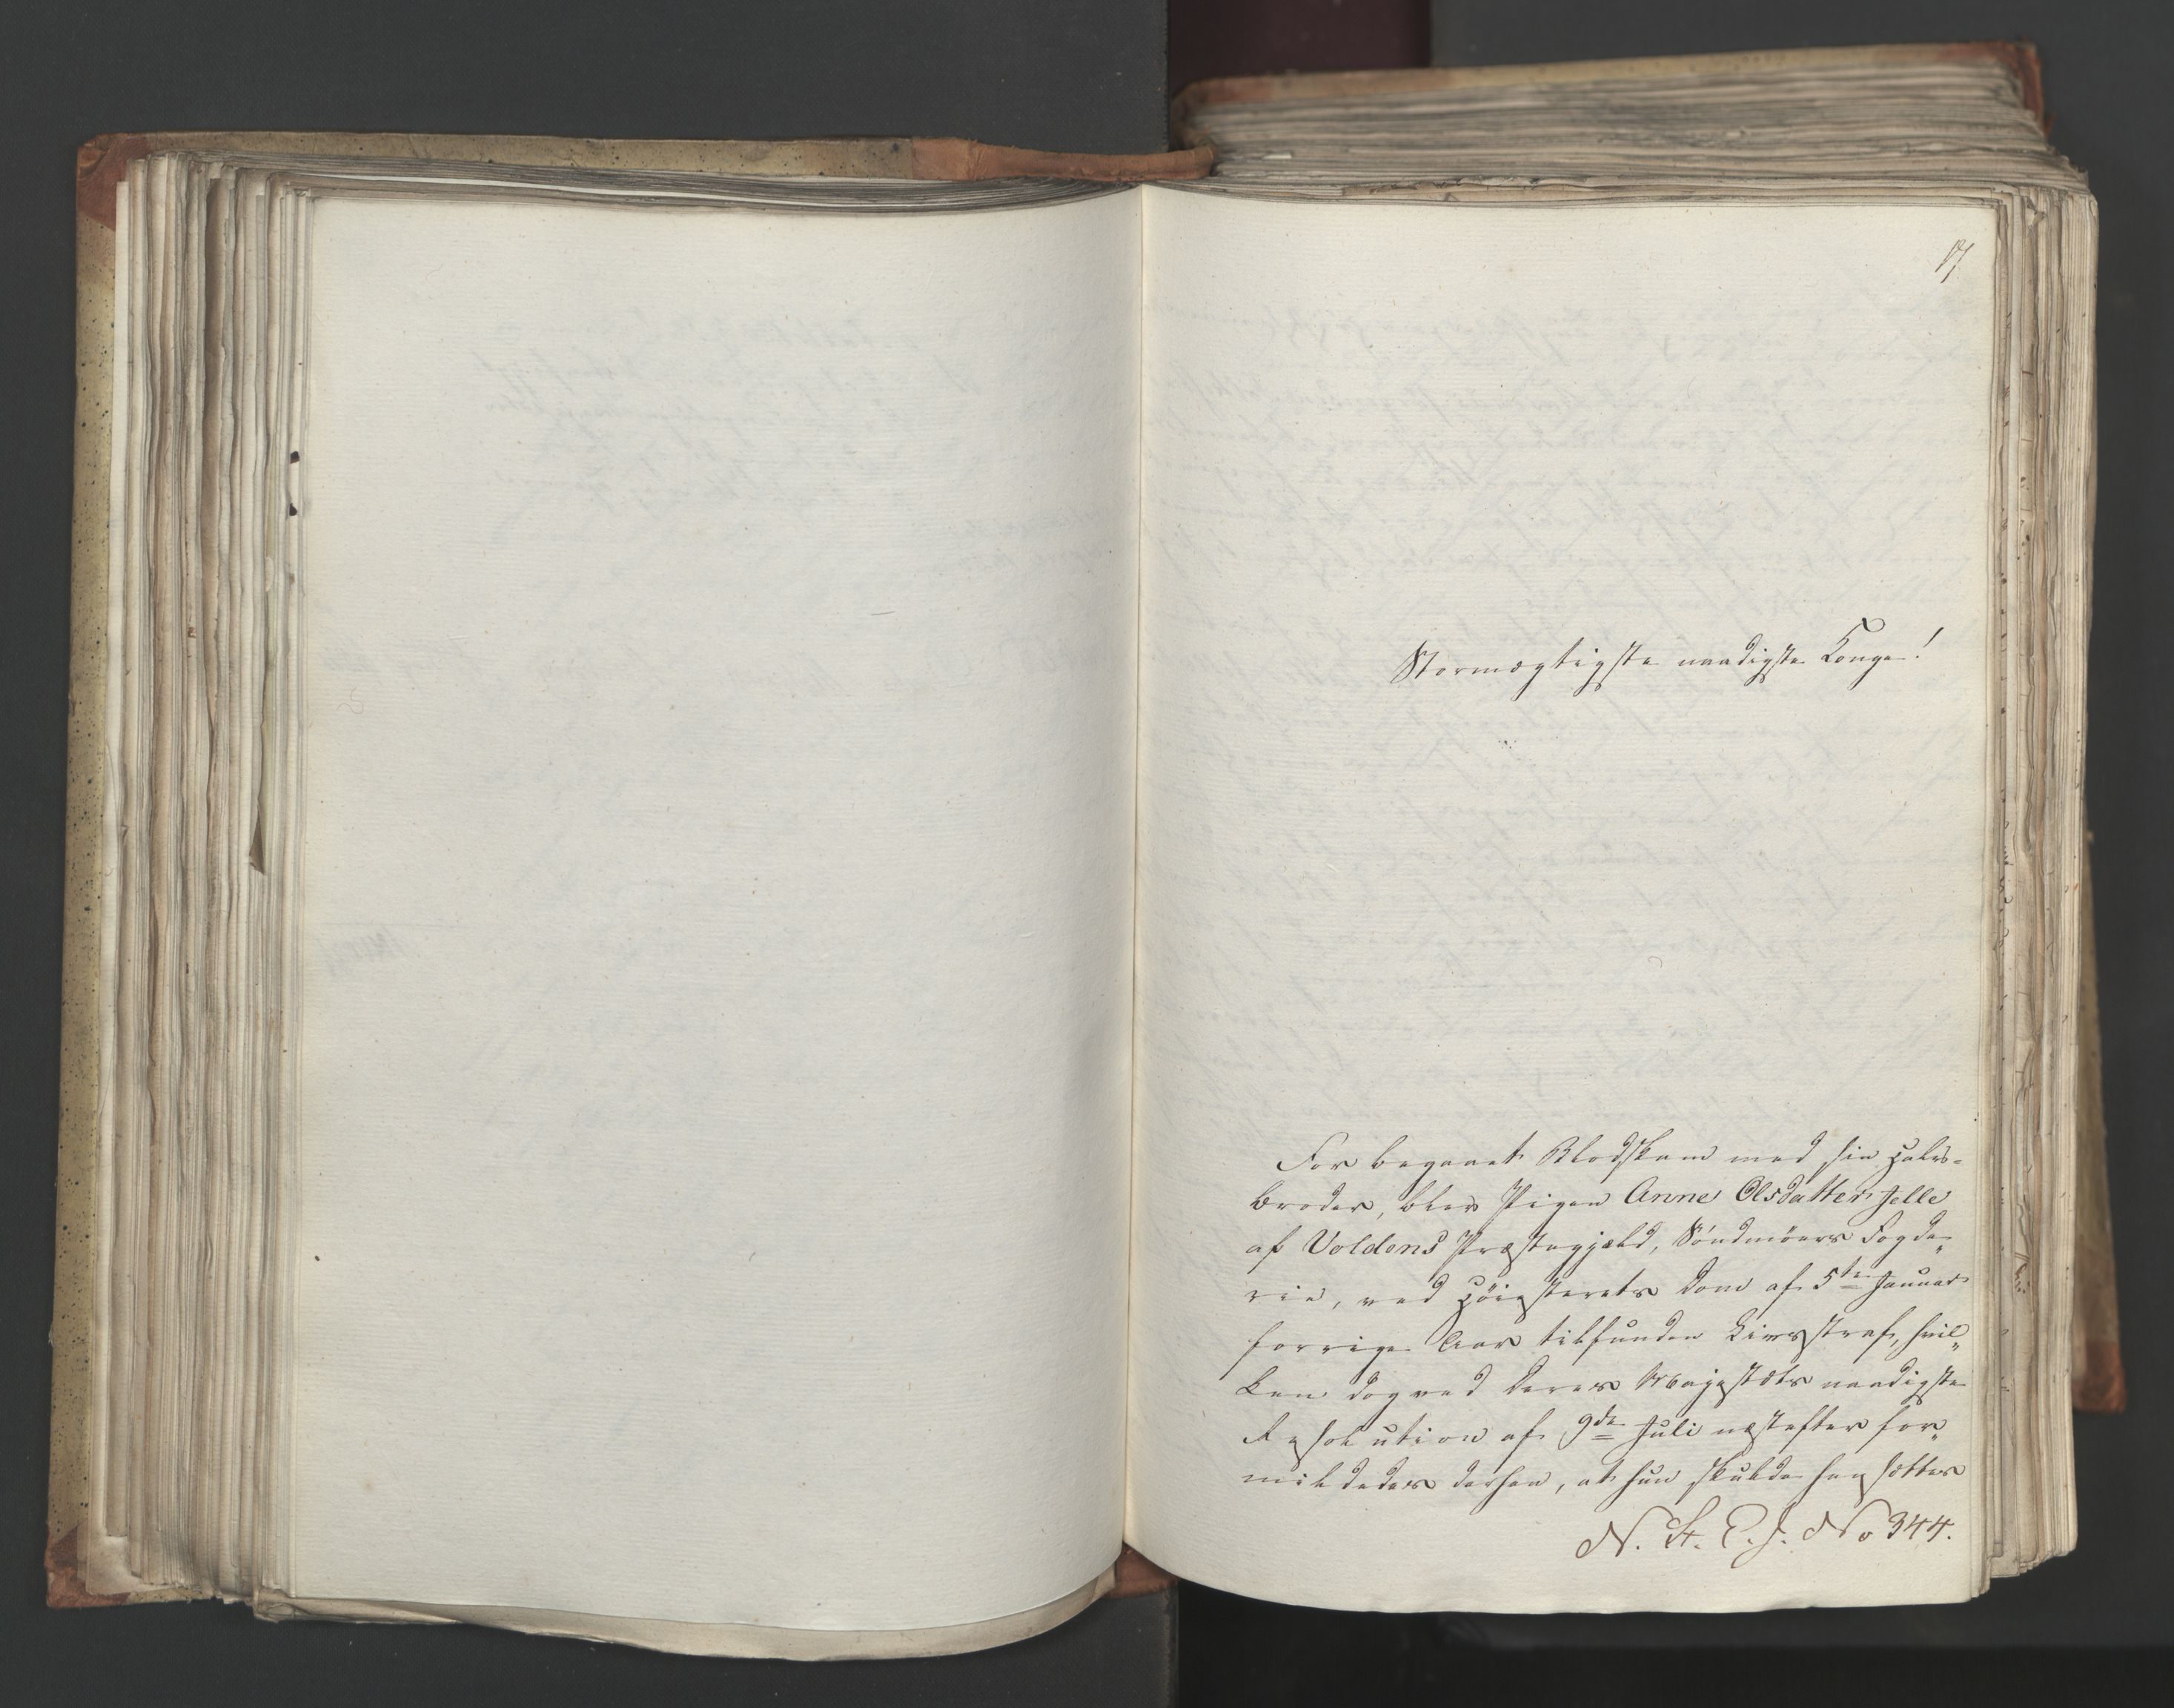 17
Stormægtigste naadigste Konge!
For begaaet Blodskam med sin Halv-
broder, blev Pigen Anne Olsdatter Jelle
af Voldens Præstegjæld, Söndmöers Fogde„
rie, ved Höiesterets Dom af 5te Januar
forrige Aar tilfunden Livsstraf, hvil„
ken dog ved Deres Majestæts naadigste
Resolution af 9de Juli næstefter for„
mildedes derhen, at hun skulde hensættes
N. St. E. J. No 344.